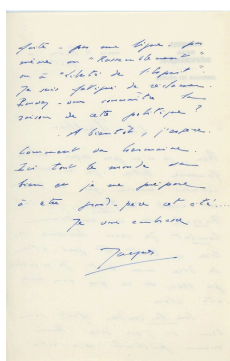 faite - pas une ligne - pas
même au "Rassemblement"
ou à "Liberté de l'Esprit".
Je suis fatigué de réclamer.
Pouvez-vous connaître la
raison de cette politique ?
A bientôt, j'espère.
Comment va
Ici tout le monde va
bien et je me prépare
à être grand-père cet été...
Je vous embrasse
Jacques